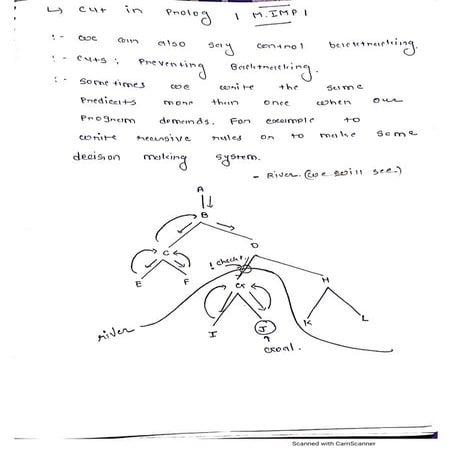 ↳ cut in Prolog | M.IMP |
:- we can also say control backtracking.
:- cuts: Preventing Backtracking.
:- sometimes we write the same
Predicats more than once when our
Program demands. For example to
write recursive rules or to make some
decision making system.
- River. (we will see.)
A
B
C
D
! check!
E
F
G
H
river
I
J
K
L
Goal.
Scanned with CamScanner